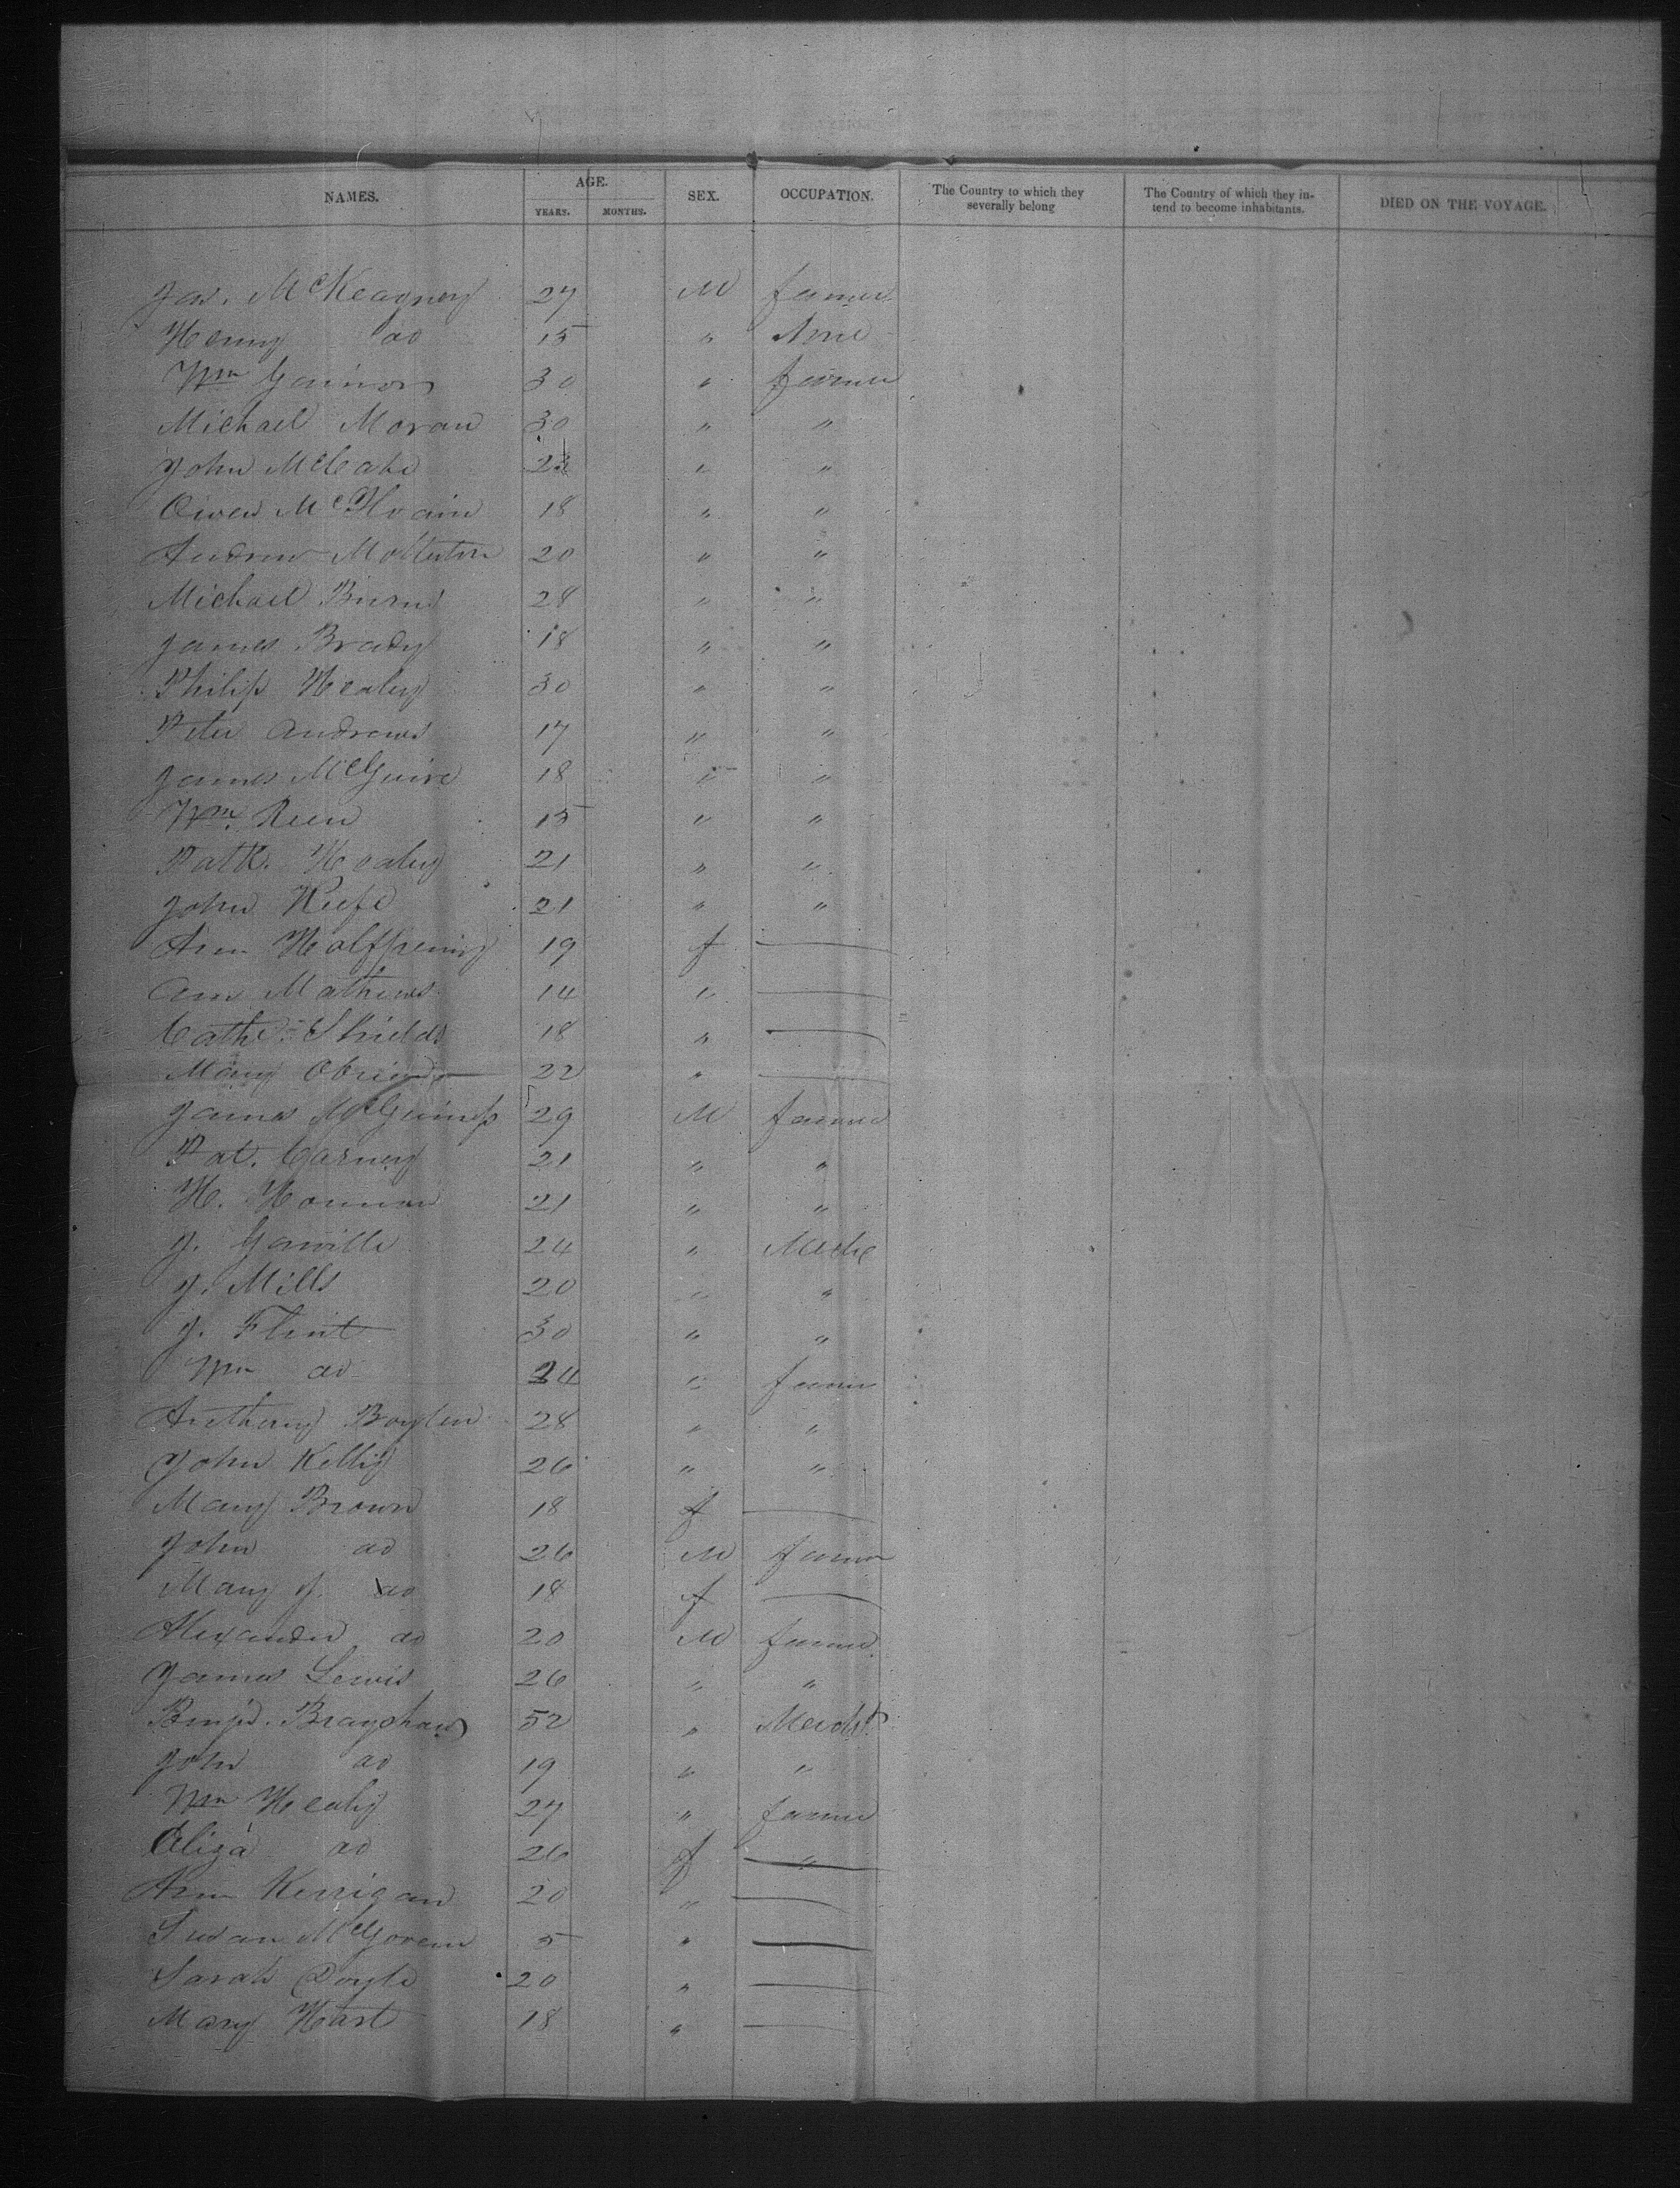 NAMES. AGE. SEX. OCCUPATION. The Country to which they severally belong The Country of which they intend to become inhabitants. DIED ON THE VOYAGE.
YEARS. MONTHS.
Jas. McKeagney 27 M farmer
Henry do 15 " None
Wm Gainor 30 " farmer
Michael Moran 30 " "
John McCabe "  "
Owen McIlvain 18 " "
Andrew 20 " "
Michael Burns 28 " "
James Brady 18 " "
Philip Healey 30 " "
Peter Andrews 17 " "
James McGuire 18 " "
Wm. 15 " "
Patk. Healey 21 " "
John Keefe 21 " "
Ann Halfpenny 19 f —
Ann Mathews 14 " —
Cathe. Shields 18 " —
Mary Obrien 22 " —
James McGuiness 29 M farmer
Pat. Carney 21 " "
H. 21 " "
J. 24 " Mechc
J. Mills 20 " "
J. Flint 30 " "
Wm do 24 " farmer
Anthony Boylen 28 " "
John Kelly 26 " "
Mary Brown 18 f —
John do 26 M farmer
Mary J. do 18 f —
Alexander do 20 M farmer
James Lewis 26 " "
Benjn. Brayshaw 52 " Mercht
John do 19 " "
Wm Healy 27 " farmer
Eliza do 26 f —
Ann Kerrigan 20 " —
Susan McGovern 5 " —
Sarah Doyle 20 " —
Mary Hart 18 " —